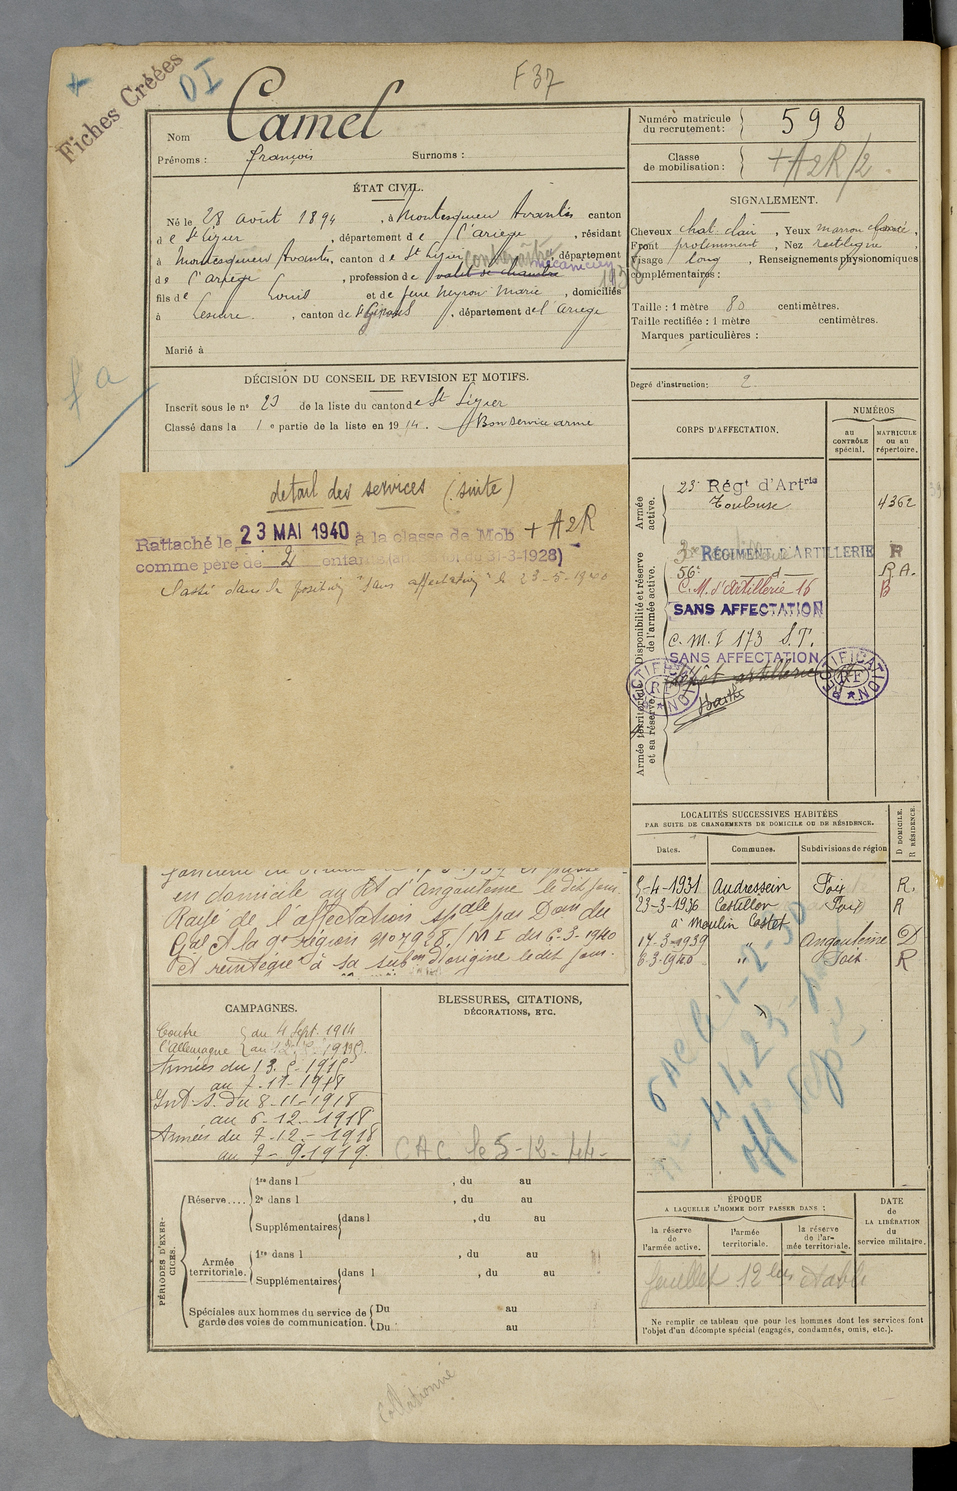 Fiches Créées
DI
F37
Nom Camel
Prénoms : françois Surnoms :
Numéro matricule du recrutement : 598
Classe de mobilisation : +A2R/2
ÉTAT CIVIL.
Né le 28 août 1894, à Montesquieu Avantès canton
de St Lizier, département de l'ariège, résidant
à Montesquieu Avantès, canton de St Lizier, département
mécanicien 1938
de l'ariège, profession de valet de chambre
fils de Louis et de feue Peyron Marie, domiciliés
à Lescure, canton de St Girons, département de l'ariège
Marié à
SIGNALEMENT.
Cheveux chat. clair, Yeux marron
Front proéminent, Nez rectiligne,
Visage long, Renseignements physionomiques
complémentaires :
Taille : 1 mètre 80 centimètres.
Taille rectifiée : 1 mètre centimètres.
Marques particulières :
Degré d'instruction : 2
DÉCISION DU CONSEIL DE REVISION ET MOTIFS.
Inscrit sous le n° 23 de la liste du canton de St Lizier
Classé dans la 1e partie de la liste en 1914. Bon service armé
detail des services (suite)
Rattaché le 23 MAI 1940 à la classe de Mob + A2R
comme père de 2 enfants 31-3-1928)
Passé dans la position "sans affectation" le 23-5-1940
CORPS D'AFFECTATION.
NUMÉROS
au CONTRÔLE spécial.
MATRICULE ou au répertoire.
Armée active.
23e Régt d'Artrie
Toulouse 4362
Disponibilité et réserve de l'armée active.
RÉGIMENT D'ARTILLERIE R
56e d R.A.
C. M. d'Artillerie 16 B
SANS AFFECTATION
C. M. I 173 S.P.
SANS AFFECTATION
Armée territoriale et sa réserve.
Dépôt artillerie
RECTIFICATION RF
RECTIFICATION RF
LOCALITÉS SUCCESSIVES HABITÉES
PAR SUITE DE CHANGEMENTS DE DOMICILE OU DE RÉSIDENCE.
Dates. Communes. Subdivisions de région
D DOMICILE. R RÉSIDENCE.
5-4-1931 Audressein Foix R.
23-3-1936 Castillon Foix R
à Moulin Castet
17-3-1939 " Angoulême D
6-3-1940 " Foix R
en domicile au Rt d'Angoulême le dit jour.
Rayé de l'affectation spale par Don du
Gal Ct la 9e région n° 7928/MI du 6-3-1940
et réintégré à sa subon d'origine le dit jour.
CAMPAGNES.
Contre l'Allemagne
du 4 Sept. 1914
au 12-5-1915.
Armées du 13-5-1915
au 7-11-1918
Int. S. du 8-11-1918
au 6-12-1918
Armées du 7-12-1918
au 7-9-1919.
BLESSURES, CITATIONS,
DÉCORATIONS, ETC.
CAC le 5-12-44
PÉRIODES D'EXERCICES.
Réserve....
1re dans l , du au
2e dans l , du au
Supplémentaires dans l , du au
Armée territoriale.
1re dans l , du au
Supplémentaires dans l , du au
Spéciales aux hommes du service de garde des voies de communication.
Du au
Du au
ÉPOQUE
A LAQUELLE L'HOMME DOIT PASSER DANS :
la réserve de l'armée active.
l'armée territoriale.
la réserve de l'armée territoriale.
DATE de LA LIBÉRATION du service militaire.
feuillet 12 bis établi
Ne remplir ce tableau que pour les hommes dont les services font
l'objet d'un décompte spécial (engagés, condamnés, omis, etc.).
Collationné